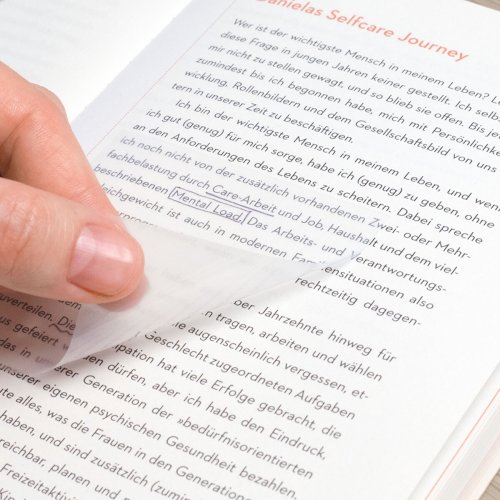 Danielas Selfcare Journey
Wer ist der wichtigste Mensch in meinem Leben?
diese Frage in jungen Jahren keiner gestellt. Ich selb
mir nicht zu stellen gewagt, und so blieb sie offen. Bis
zumindest bis ich begonnen habe, mich mit Persönlichke
wicklung, Rollenbildern und dem Gesellschaftsbild von uns
tern in unserer Zeit zu beschäftigen.
Ich bin der wichtigste Mensch in meinem Leben, und wenn
ich gut (genug) für mich sorge, habe ich (genug) zu geben, ohne
an den Anforderungen des Lebens zu scheitern. Dabei spreche
ich noch nicht von der zusätzlich vorhandenen Zwei- oder Mehr-
fachbelastung durch Care-Arbeit und Job, Haushalt und dem viel-
beschriebenen Mental Load. Das Arbeits- und Verantwortungs-
gleichgewicht ist auch in modernen Familiensituationen also
rechtzeitig dagegen-
zuverteilen. Die
oer Jahrzehnte hinweg für
us gefeiert
en tragen, arbeiten und wählen
das in
e augenscheinlich vergessen, et-
Geschlecht zugeordneten Aufgaben
pation hat viele Erfolge gebracht, die
den dürfen, aber ich habe den Eindruck,
unserer Generation der »bedürfnisorientierten
ute alles, was die Frauen in den Generationen
einer eigenen psychischen Gesundheit bezahlen.
haben, und sind zusätzlich (zumin
reichbar, planen und
Freizeitaktiv